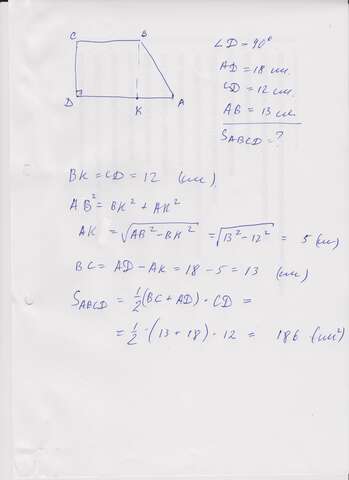 C B
D K A
∠D = 90°
AD = 18 см.
CD = 12 см.
AB = 13 см.
S_ABCD = ?
BK = CD = 12 (см).
AB² = BK² + AK²
AK = √(AB² - BK²) = √(13² - 12²) = 5 (см)
BC = AD - AK = 18 - 5 = 13 (см)
S_ABCD = 1/2 (BC + AD) · CD =
= 1/2 · (13 + 18) · 12 = 186 (см²)